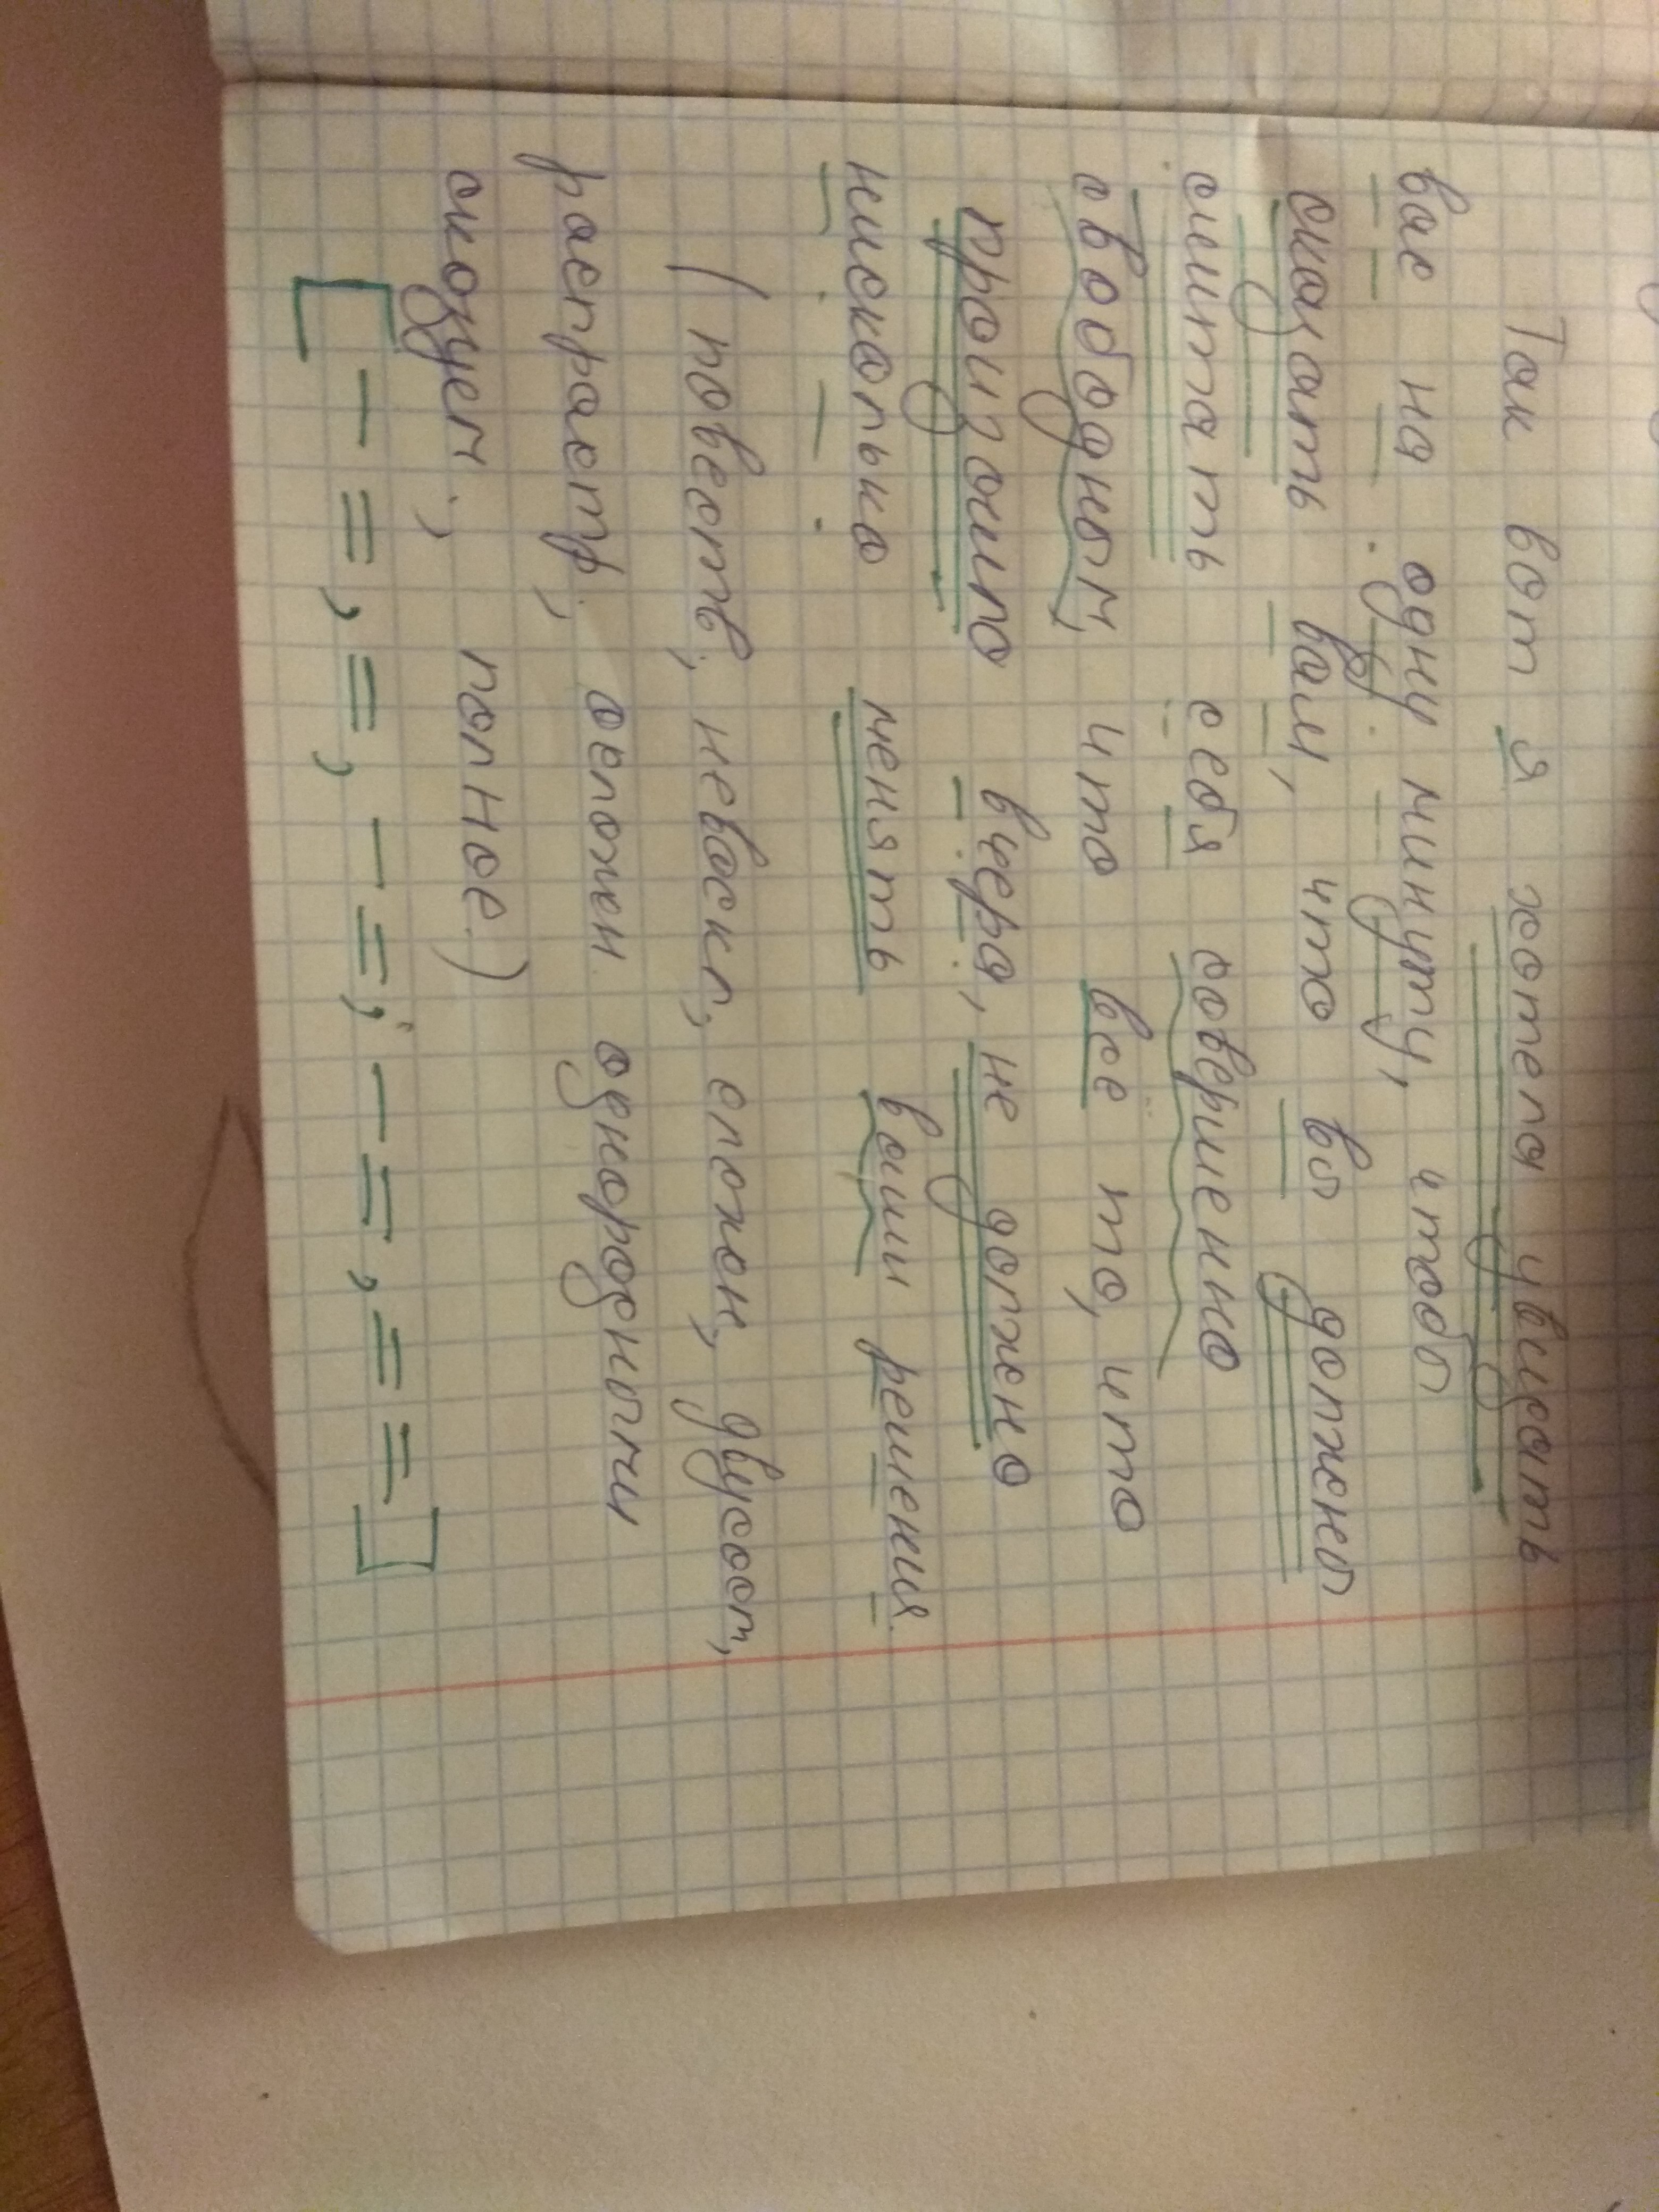 Так вот я хотела увидать
вас на одну минуту, чтоб
сказать вам, что вы должны
считать себя совершенно
свободным, что всё то, что
произошло вчера, не должно
нисколько менять ваши решения.
(повеств., невоскл., сложн., двусост.,
распростр., осложн. однородными
сказуем., полное.)
[ – = , = , – = , – = , = = ]